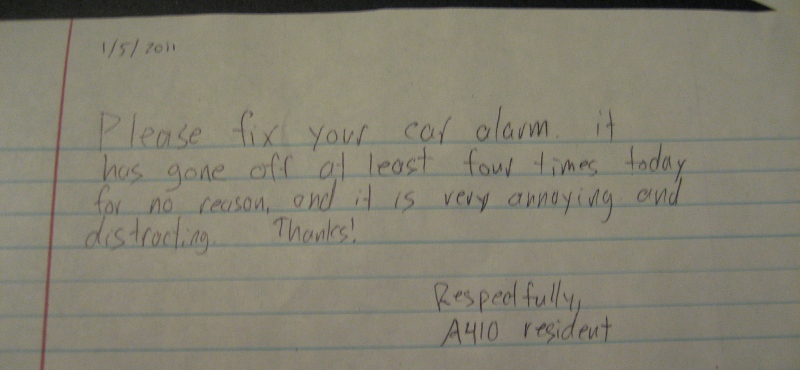 1/5/2011
Please fix your car alarm. it
has gone off at least four times today
for no reason, and it is very annoying and
distracting. Thanks!
Respectfully,
A410 resident